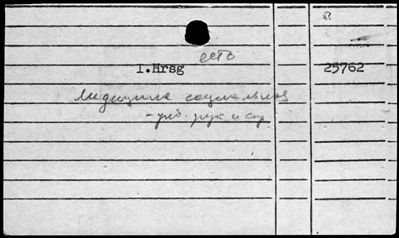 есть
I.Hrsg 25762
Медицина социальная
- учеб. рук и сп